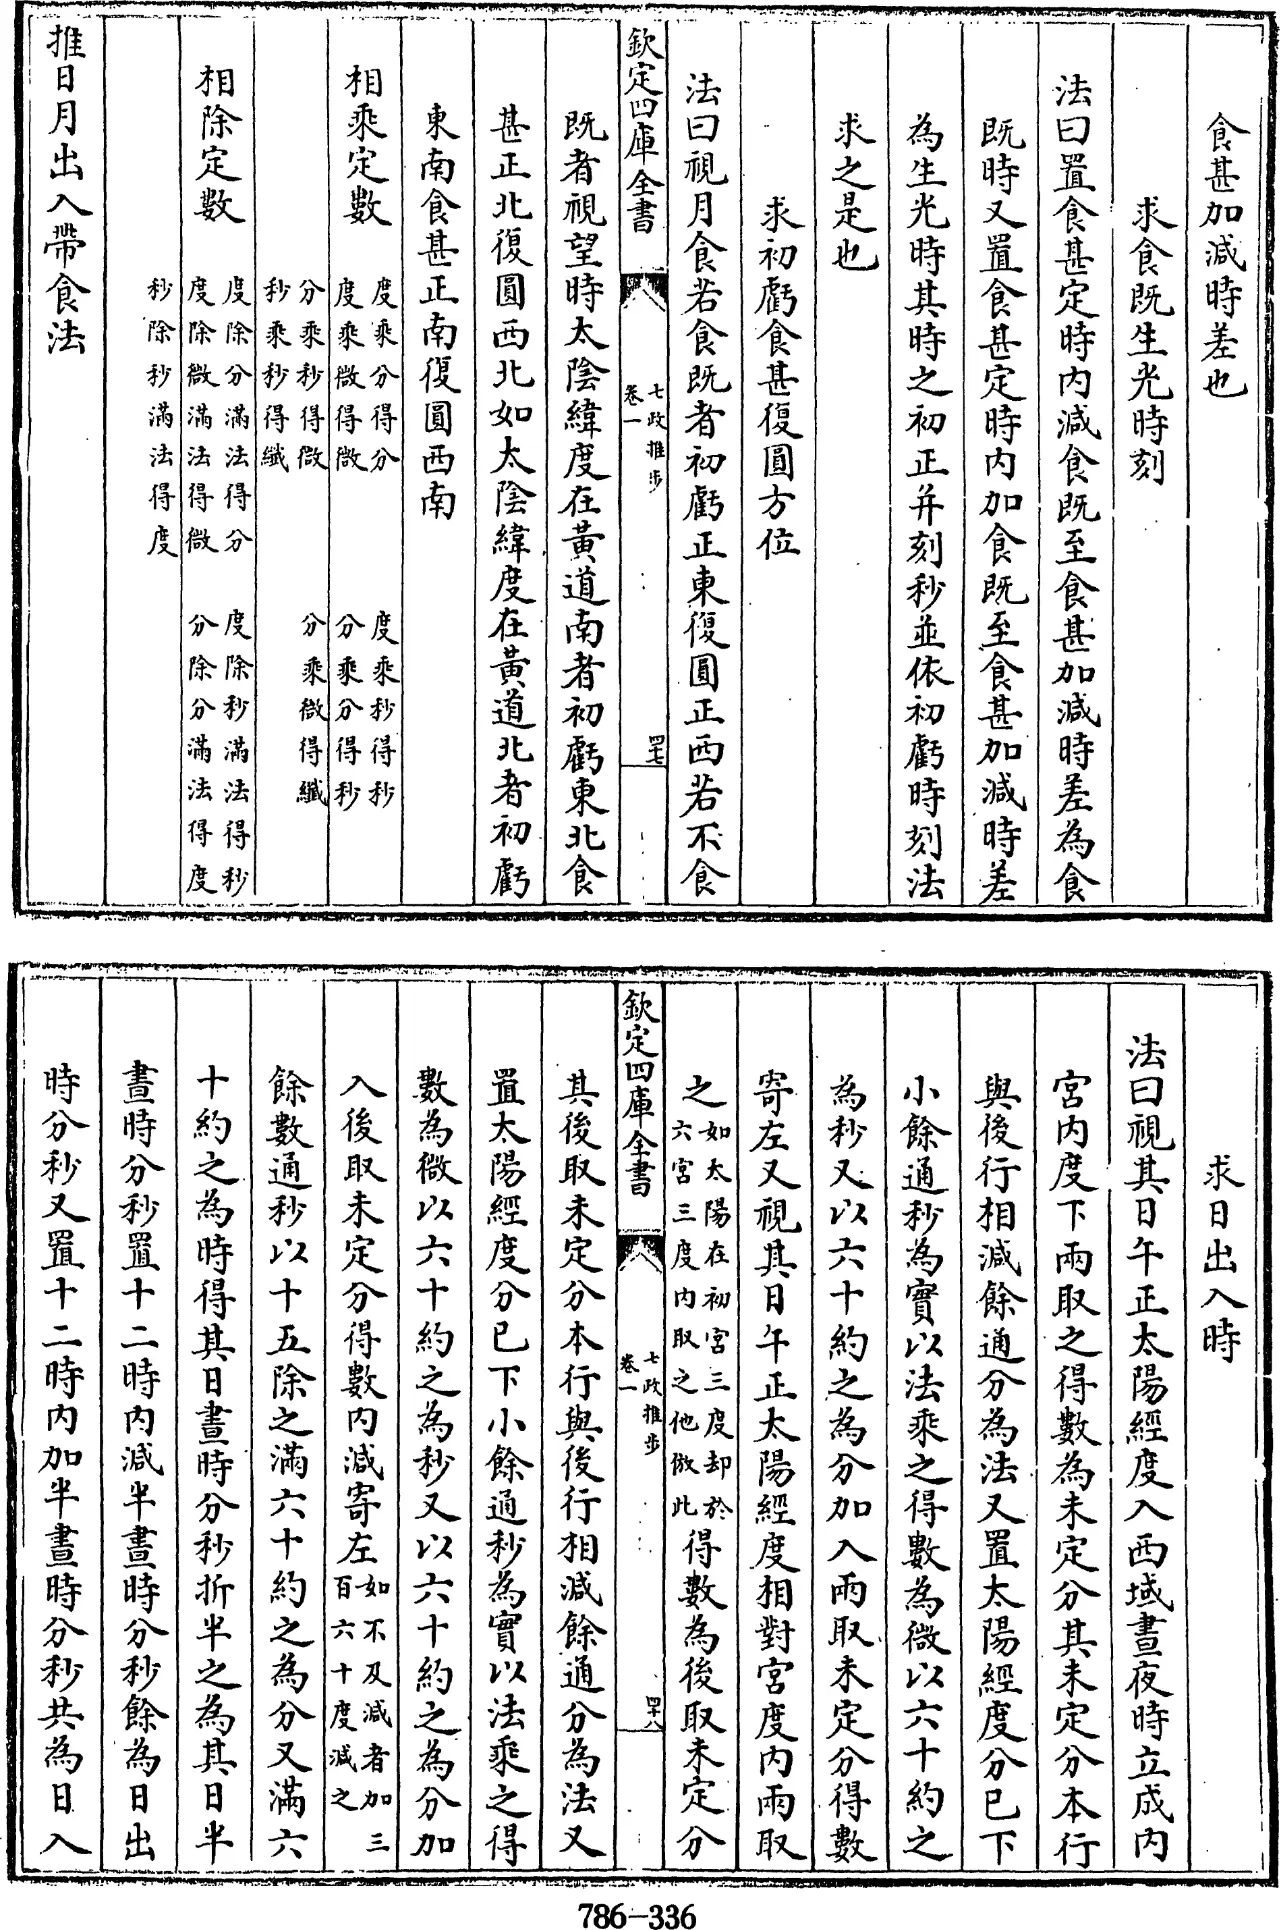 食甚加減時差也
求食既生光時刻
法曰置食甚定時内減食既至食甚加減時差為食
既時又置食甚定時内加食既至食甚加減時差
為生光時其時之初正并刻秒並依初虧時刻法
求之是也
求初虧食甚復圓方位
法曰視月食若食既者初虧正東復圓正西若不食
欽定四庫全書
七政推步
卷一
四七
既者視望時太陰緯度在黃道南者初虧東北食
甚正北復圓西北如太陰緯度在黃道北者初虧
東南食甚正南復圓西南
相乘定數
度乘分得分
度乘秒得秒
度乘微得微
分乘分得秒
分乘秒得微
分乘微得纖
秒乘秒得纖
相除定數
度除分滿法得分
度除秒滿法得秒
度除微滿法得微
分除分滿法得度
秒除秒滿法得度
推日月出入帶食法
求日出入時
法曰視其日午正太陽經度入西域晝夜時立成内
宮内度下兩取之得數為未定分其未定分本行
與後行相減餘通分為法又置太陽經度分已下
小餘通秒為實以法乘之得數為微以六十約之
為秒又以六十約之為分加入兩取未定分得數
寄左又視其日午正太陽經度相對宮度内兩取
之如太陽在初宮三度却於六宮三度内取之他倣此得數為後取未定分
欽定四庫全書
七政推步
卷一
四十八
其後取未定分本行與後行相減餘通分為法又
置太陽經度分已下小餘通秒為實以法乘之得
數為微以六十約之為秒又以六十約之為分加
入後取未定分得數内減寄左如不及減者加三百六十度減之
餘數通秒以十五除之滿六十約之為分又滿六
十約之為時得其日晝時分秒折半之為其日半
晝時分秒置十二時内減半晝時分秒餘為日出
時分秒又置十二時内加半晝時分秒共為日入
786-336